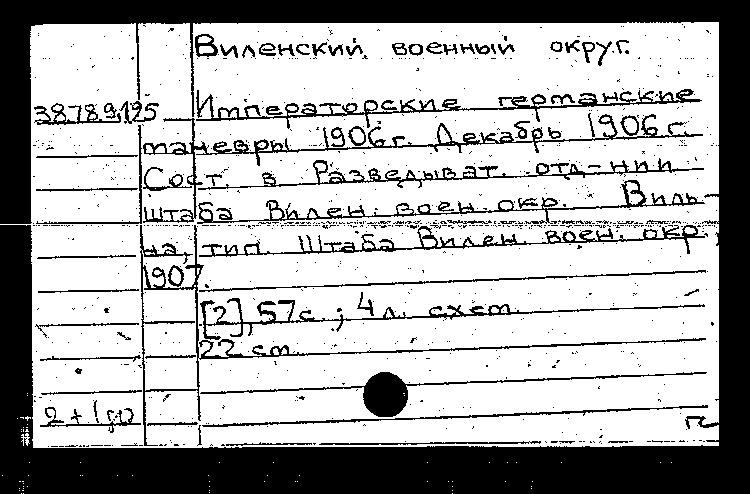 Виленский военный округ.
38.78.9,125 Императорские германские
маневры 1906 г. Декабрь 1906 г.
Сост. в Разведыват. отд-нии
штаба Вилен. воен. окр. Виль-
на, тип. Штаба Вилен. воен. окр.,
1907.
[2], 57 с.; 4 л. схем.
22 см.
2 + 1